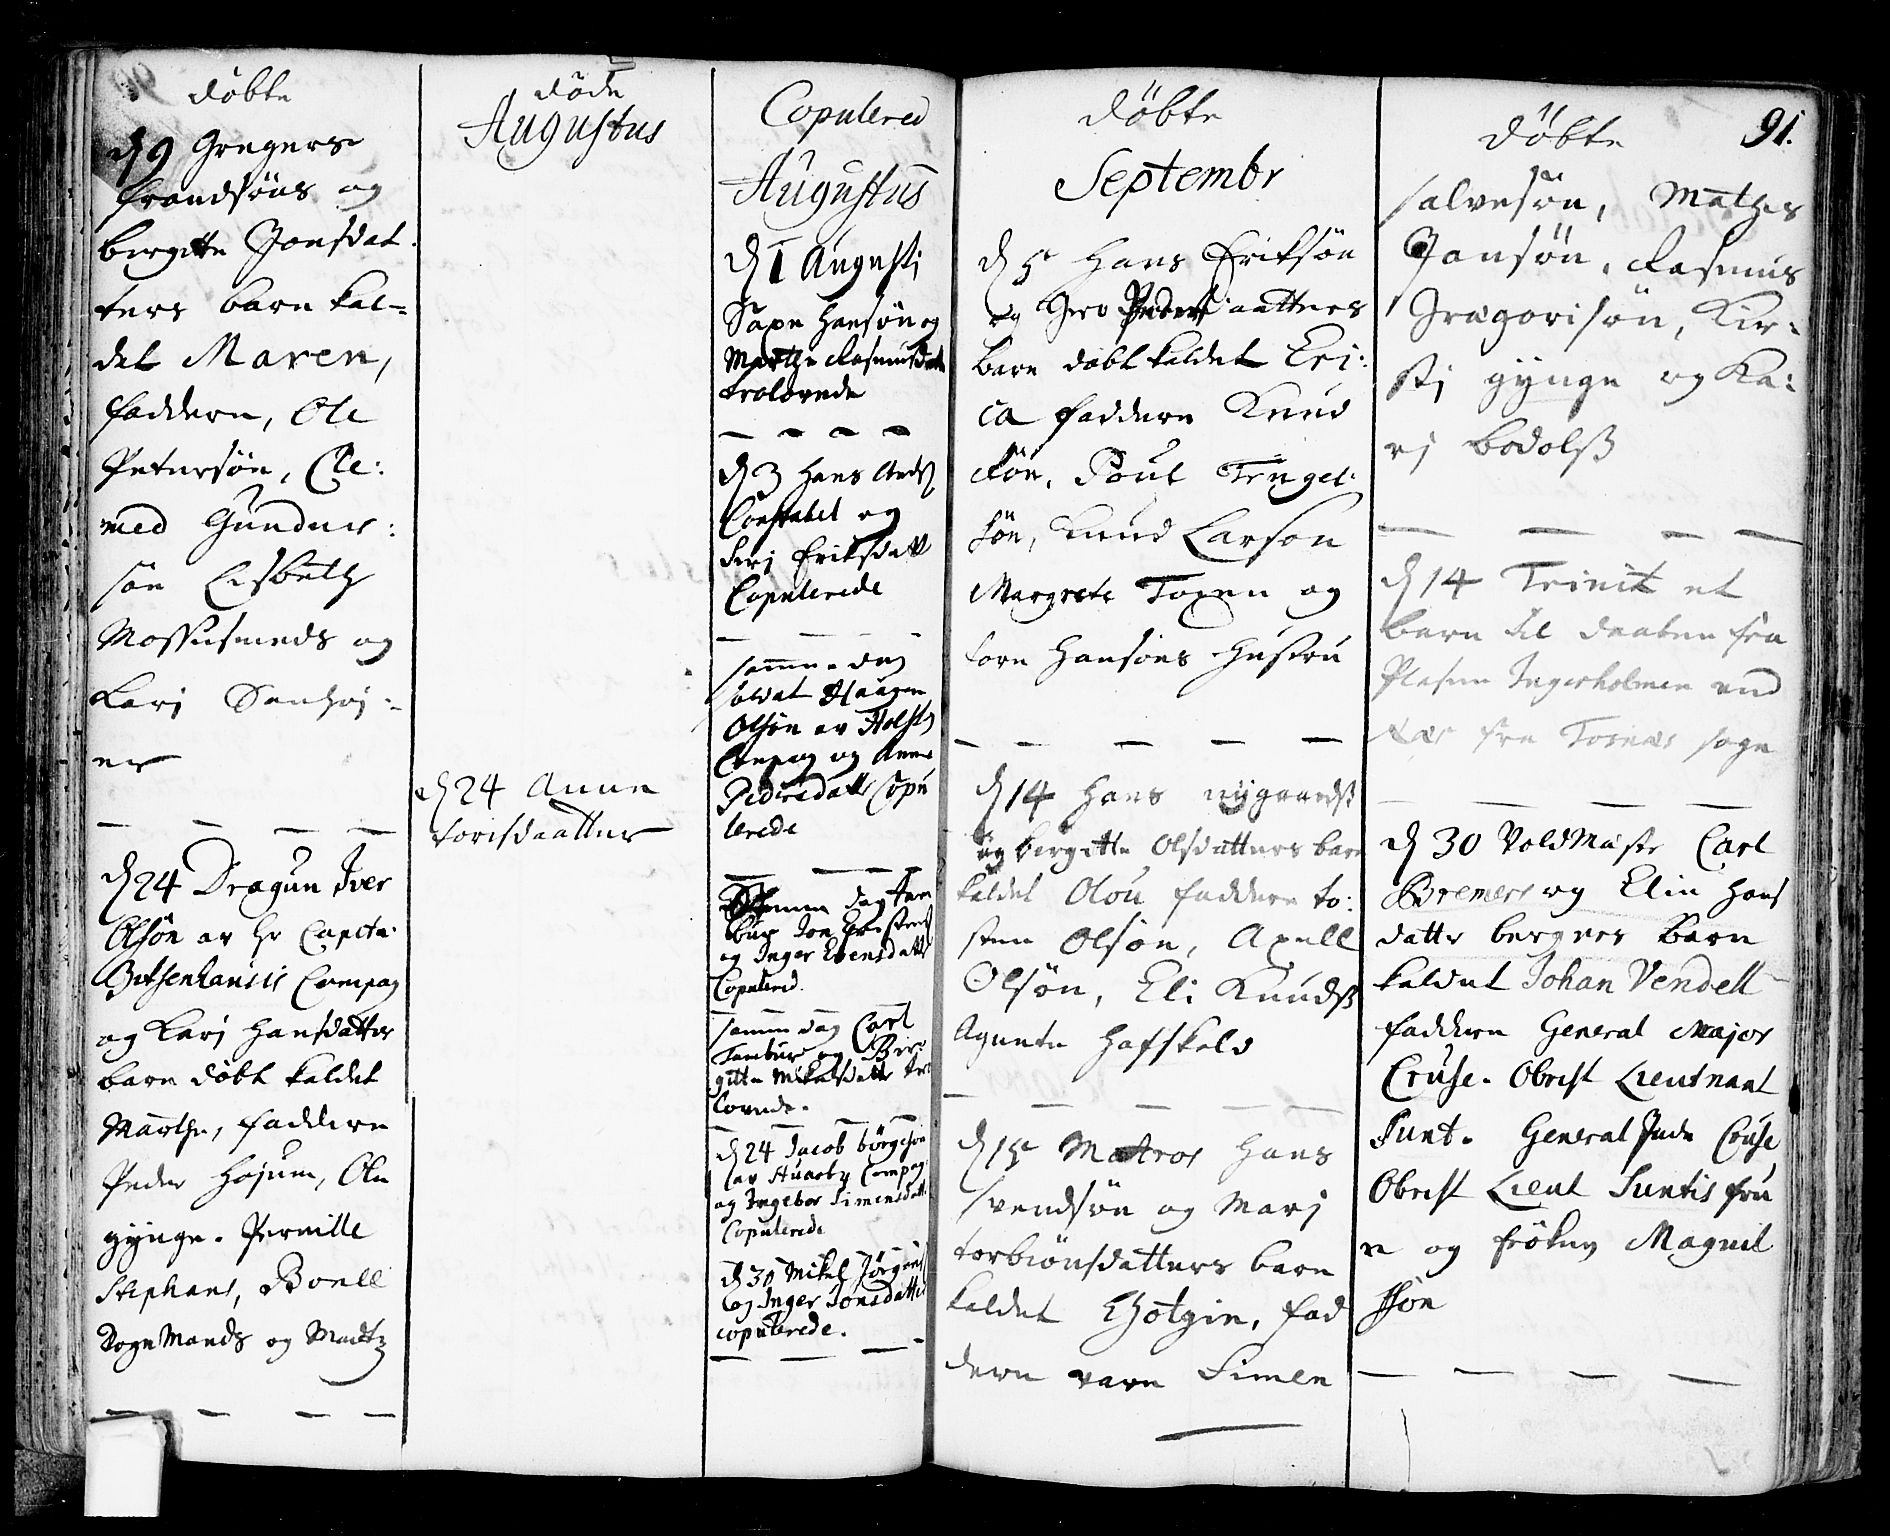 døbte
d 9 Gregers
frandsøns og
birgitte Jonsdat
ters barn kal-
det Maren,
faddern, Ole
Petersøn, Cle:
med Gunder:
søn Lisbeth
Mossesmeds og
Karj
er
d 24 Dragun Iver
Olsøn av hr Capita:
Compag
og Karj Hansdatters
barn døbt kaldet
Marthe, faddere
Peder Højum, Ole
gynge. Pernille
Stephans, Boell
Rognmands og Madtz
døde
Augustus
d 24 Anne
torisdaatter
Copulered
Augustus
d 1 Augustj
Saxe Hansøn og
Marthe Rasmusdatt
trolovede
d 3 Hans And
Constabel og
Sirj Eriksdatt
Copulerede
samme dag
soldat Haagen
Olsøn av Holst
Compag og Anne
Pedersdatt Copu
lerede
samme dag Tam
bur Jon
og Inger Evensdatt
Copulered.
samme dag Carl
Tambur og Bir
gitte Mikelsdatt tro
lovede.
d 24 Jacob børgesøn
av Huusby Compag
og Ingebor Simensdatt
Copulerede
d 30 Mikel Jørgens
og Inger Jonsdatter
copulerede.
døbte
Septembr
d 5 Hans Eriksøn
og Gro Peders daatters
barn døbt kaldet Eri:
ca faddere Knud
Røn, Poul Tengel:
søn, Knud Larson
Margrete Toxen og
tore Hansøns Hustru
d 14 Hans nygaards
og birgitte Olsdatters barn
kaldet Olou faddere to:
sten Olsøn, Axell
Olsøn, Eli Knuds
Agnete Hafskold
d 15 Matros Hans
svendsøn og Marj
torbiønsdatters barn
kaldet, fad
dern vare Simen
døbte
91.
salvesøn, Mathis
Jansøn, Rasmus
Gregorisøn, Kir-
stj gynge og Ka:
rj bodolss
d 14 Trinit et
barn til daaben fra
Pladsen Ingerholmen
fra Tosnæs sogn
d 30 VoldMester Carl
Bremers og Elin Hans
datter bergers barn
kaldet Johan Vendell
faddern General Major
Cruse. Obrist Lieutnant
Sunt. General Inde Cruse
Obrist Lieut Suntis fru
e og frøken Magnil
sføn